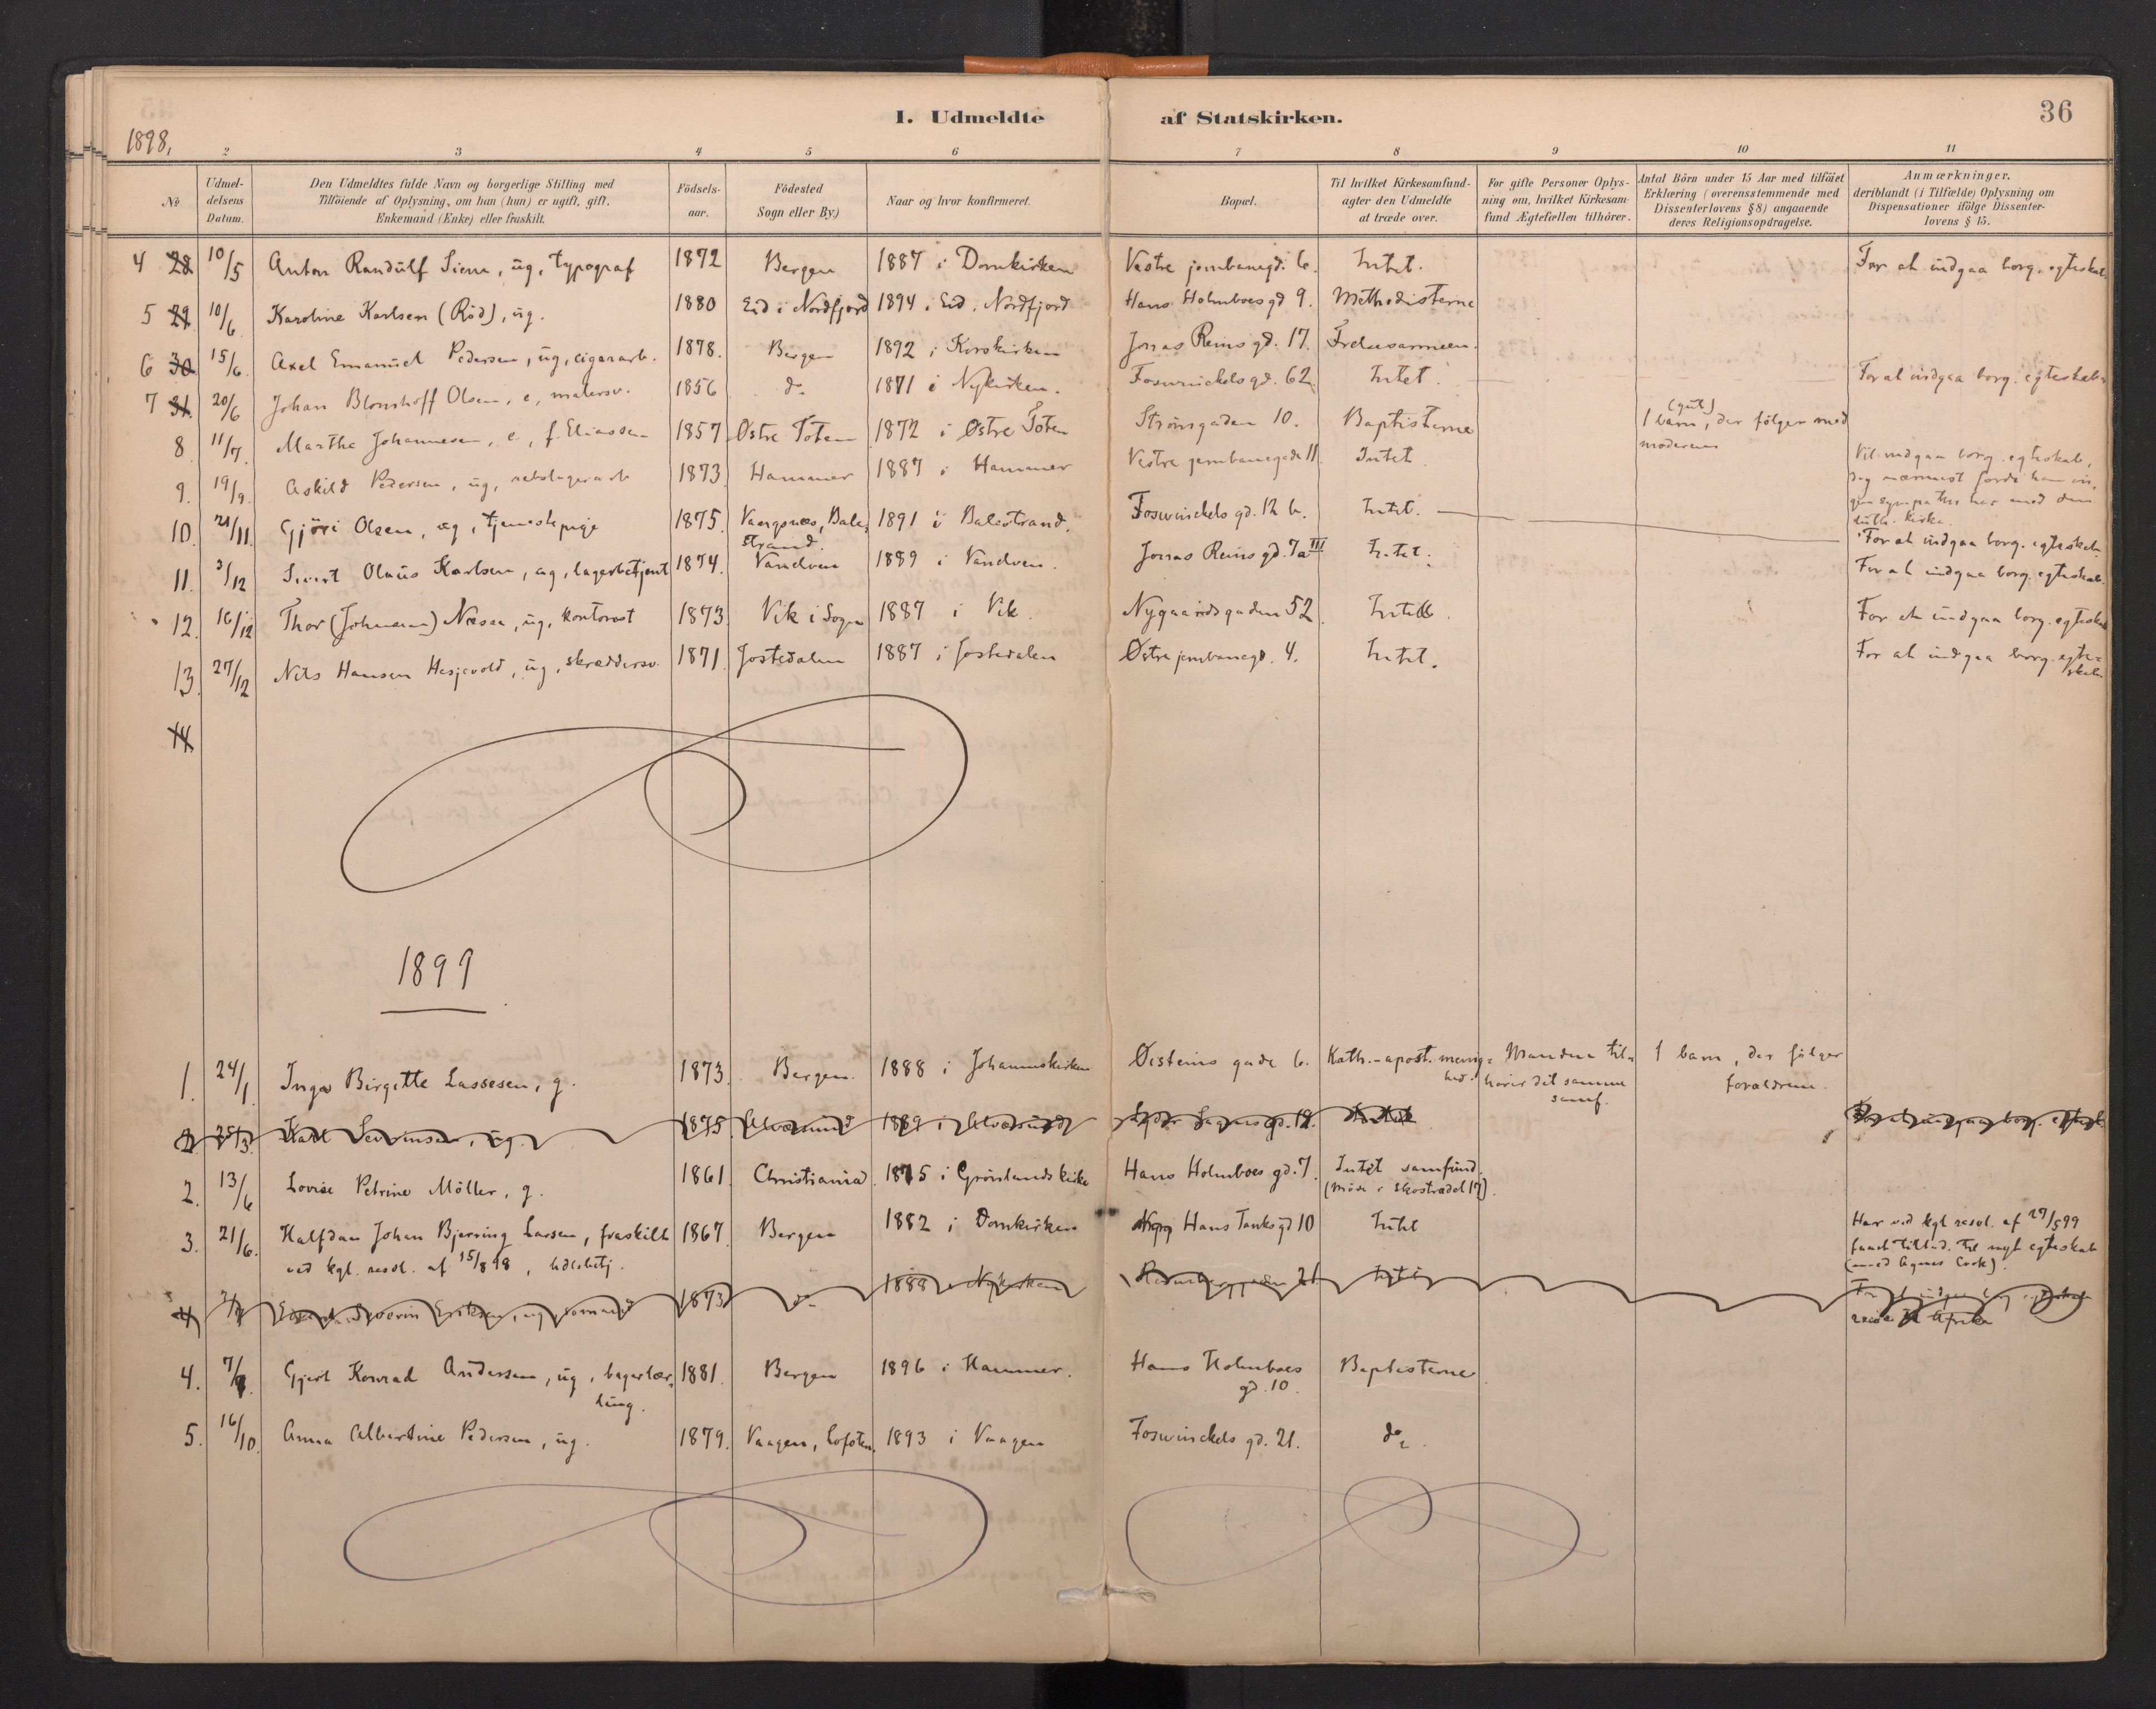 I. Udmeldte af Statskirken. 36
1898.
2 3 4 5 6 7 8 9 10 11
No
Udmeldelsens Datum.
Den Udmeldtes fulde Navn og borgerlige Stilling med
Tilföiende af Oplysning, om han (hun) er ugift, gift,
Enkemand (Enke) eller fraskilt.
Födselsaar.
Födested
Sogn eller By)
Naar og hvor konfirmeret.
Bopæl.
Til hvilket Kirkesamfund-
agter den Udmeldte
at træde over.
For gifte Personer Oplys-
ning om, hvilket Kirkesam-
fund Ægtefællen tilhörer.
Antal Börn under 15 Aar med tilföiet
Erklæring (overensstemmende med
Dissenterlovens § 8) angaaende
deres Religionsopdragelse.
Anmærkninger,
deriblandt (i Tilfælde) Oplysning om
Dispensationer ifölge Dissenter-
lovens § 15.
4 28 10/5 Anton Randulf Siem, ug, typograf 1872 Bergen 1887 i Domkirken Vestre jernbanegd. 6. Intet. For at indgaa borg. egteskab
5 29 10/6 Karoline Karlsen (Röd), ug. 1880 Eid i Nordfjord 1894 i Eid, Nordfjord Hans Holmboes gd 9. Methodisterne
6 30 15/6. Axel Emanuel Pedersen, ug, cigararb. 1878. Bergen 1892 i Korskirken Jonas Reins gd. 17. Frelsesarmeen.
7 31 20/6 Johan Blomhoff Olsen, e, malersv. 1856 do 1871 i Nykirken. Foswinckels gd. 62. Intet. For at indgaa borg. egteskab
8. 11/7. Marthe Johannesen, e, f. Eliassen 1857 Østre Toten 1872 i Østre Toten Strömgaden 10. Baptisterne 1 barn (gut), der følger med
moderen
9. 19/9. Askild Pedersen, ug, 1873 Hammer 1887 i Hammer Vestre jernbanegade 11. Intet Vil indgaa borg. egteskab,
dog nærmest fordi han
sympathi har med den
luth. kirke.
10. 21/11. Gjöri Olsen, ug, tjenestepige 1875. Vangsnæs, Bale-
strand. 1891 i Balestrand. Foswinckels gd. 12 b. Intet. For at indgaa borg. egteskab
11. 3/12 Sivert Olaus Karlsen, ug, lagerbetjent 1874. Vandven 1889 i Vandven. Jonas Reins gd. 7a III Intet. For at indgaa borg. egteskab.
12. 16/12 Thor (Johnsen) Næsen, ug, kontorist 1873. Vik i Sogn 1887 i Vik. Nygaardsgaden 52. Intet For at indgaa borg. egteskab
13. 27/12 Nils Hansen Hesjevold, ug, skræddersv. 1871. Jostedalen 1887 i Jostedalen Østre jernbanegd. 4. Intet. For at indgaa borg. egte-
skab
14
1899
1. 24/1. Inga Birgitte Lassesen, g. 1873. Bergen. 1888 i Johanneskirken Øisteins gade 6. Kath.-apost. menig-
hed. Manden til-
hører det samme
samf. 1 barn, der følger
forældrene.
2. 25/3. Karl Severinsen, ug. 1875. Alversund 1889 i Alversund gd. 12. Intet For at indgaa borg. egtesk.
2. 13/6 Lovise Petrine Möller, g. 1861. Christiania 1875 i Grønlands kirke Hans Holmboes gd. 7. Intet samfund.
3. 21/6. Halfdan Johan Bjerring Larsen, fraskilt
ved kgl. resol. af 15/8 98, 1867. Bergen 1882 i Domkirken Hans Tanks gd 10 Intet Har ved kgl resol. af 27/5 99
faaet tillad. til nyt egteskab
(med Agnes Cook).
4 Severin Eriksen, ug sömand 1873 do 1888 i Nykirken 21 Intet For at indgaa borg. egteskab
reise til Afrika
4. 7/9. Gjert Konrad Andersen, ug, bagerlær-
ling. 1881. Bergen 1896 i Hammer. Hans Holmboes
gd. 10. Baptisterne
5. 16/10. Anna Albertine Pedersen, ug. 1879. Vaagen, Lofoten. 1893 i Vaagen Foswinckels gd. 21. do.